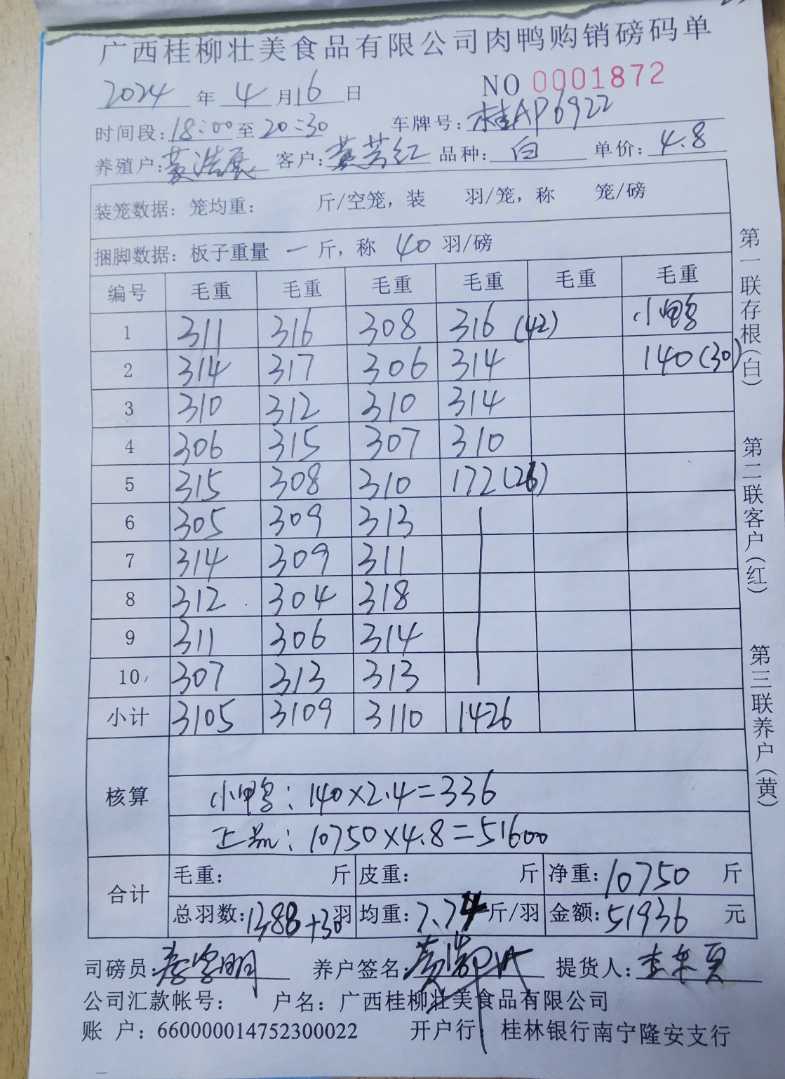 广西桂柳壮美食品有限公司肉鸭购销磅码单
2024 年 4 月 16 日 NO 0001872
时间段: 18:00 至 20:30 车牌号: 桂AP6922
养殖户: 客户: 黄芳红 品种: 白 单价: 4.8
装笼数据: 笼均重: 斤/空笼, 装 羽/笼, 称 笼/磅
捆脚数据: 板子重量 一 斤, 称 40 羽/磅
编号 毛重 毛重 毛重 毛重 毛重 毛重
1 311 316 308 316 (42) 小鸭
2 314 317 306 314 140 (30)
3 310 312 310 314
4 306 315 307 310
5 315 308 310 172 (26)
6 305 309 313
7 314 309 311
8 312 304 318
9 311 306 314
10 307 313 313
小计 3105 3109 3110 1426
核算
小鸭: 140×2.4=336
正品: 10750×4.8=51600
合计 毛重: 斤 皮重: 斤 净重: 10750 斤
总羽数: 1388+30 羽 均重: 7.74 斤/羽 金额: 51936 元
司磅员: 养户签名: 提货人:
公司汇款帐号: 户名: 广西桂柳壮美食品有限公司
账 户: 660000014752300022 开户行: 桂林银行南宁隆安支行
第一联存根(白)
第二联客户(红)
第三联养户(黄)